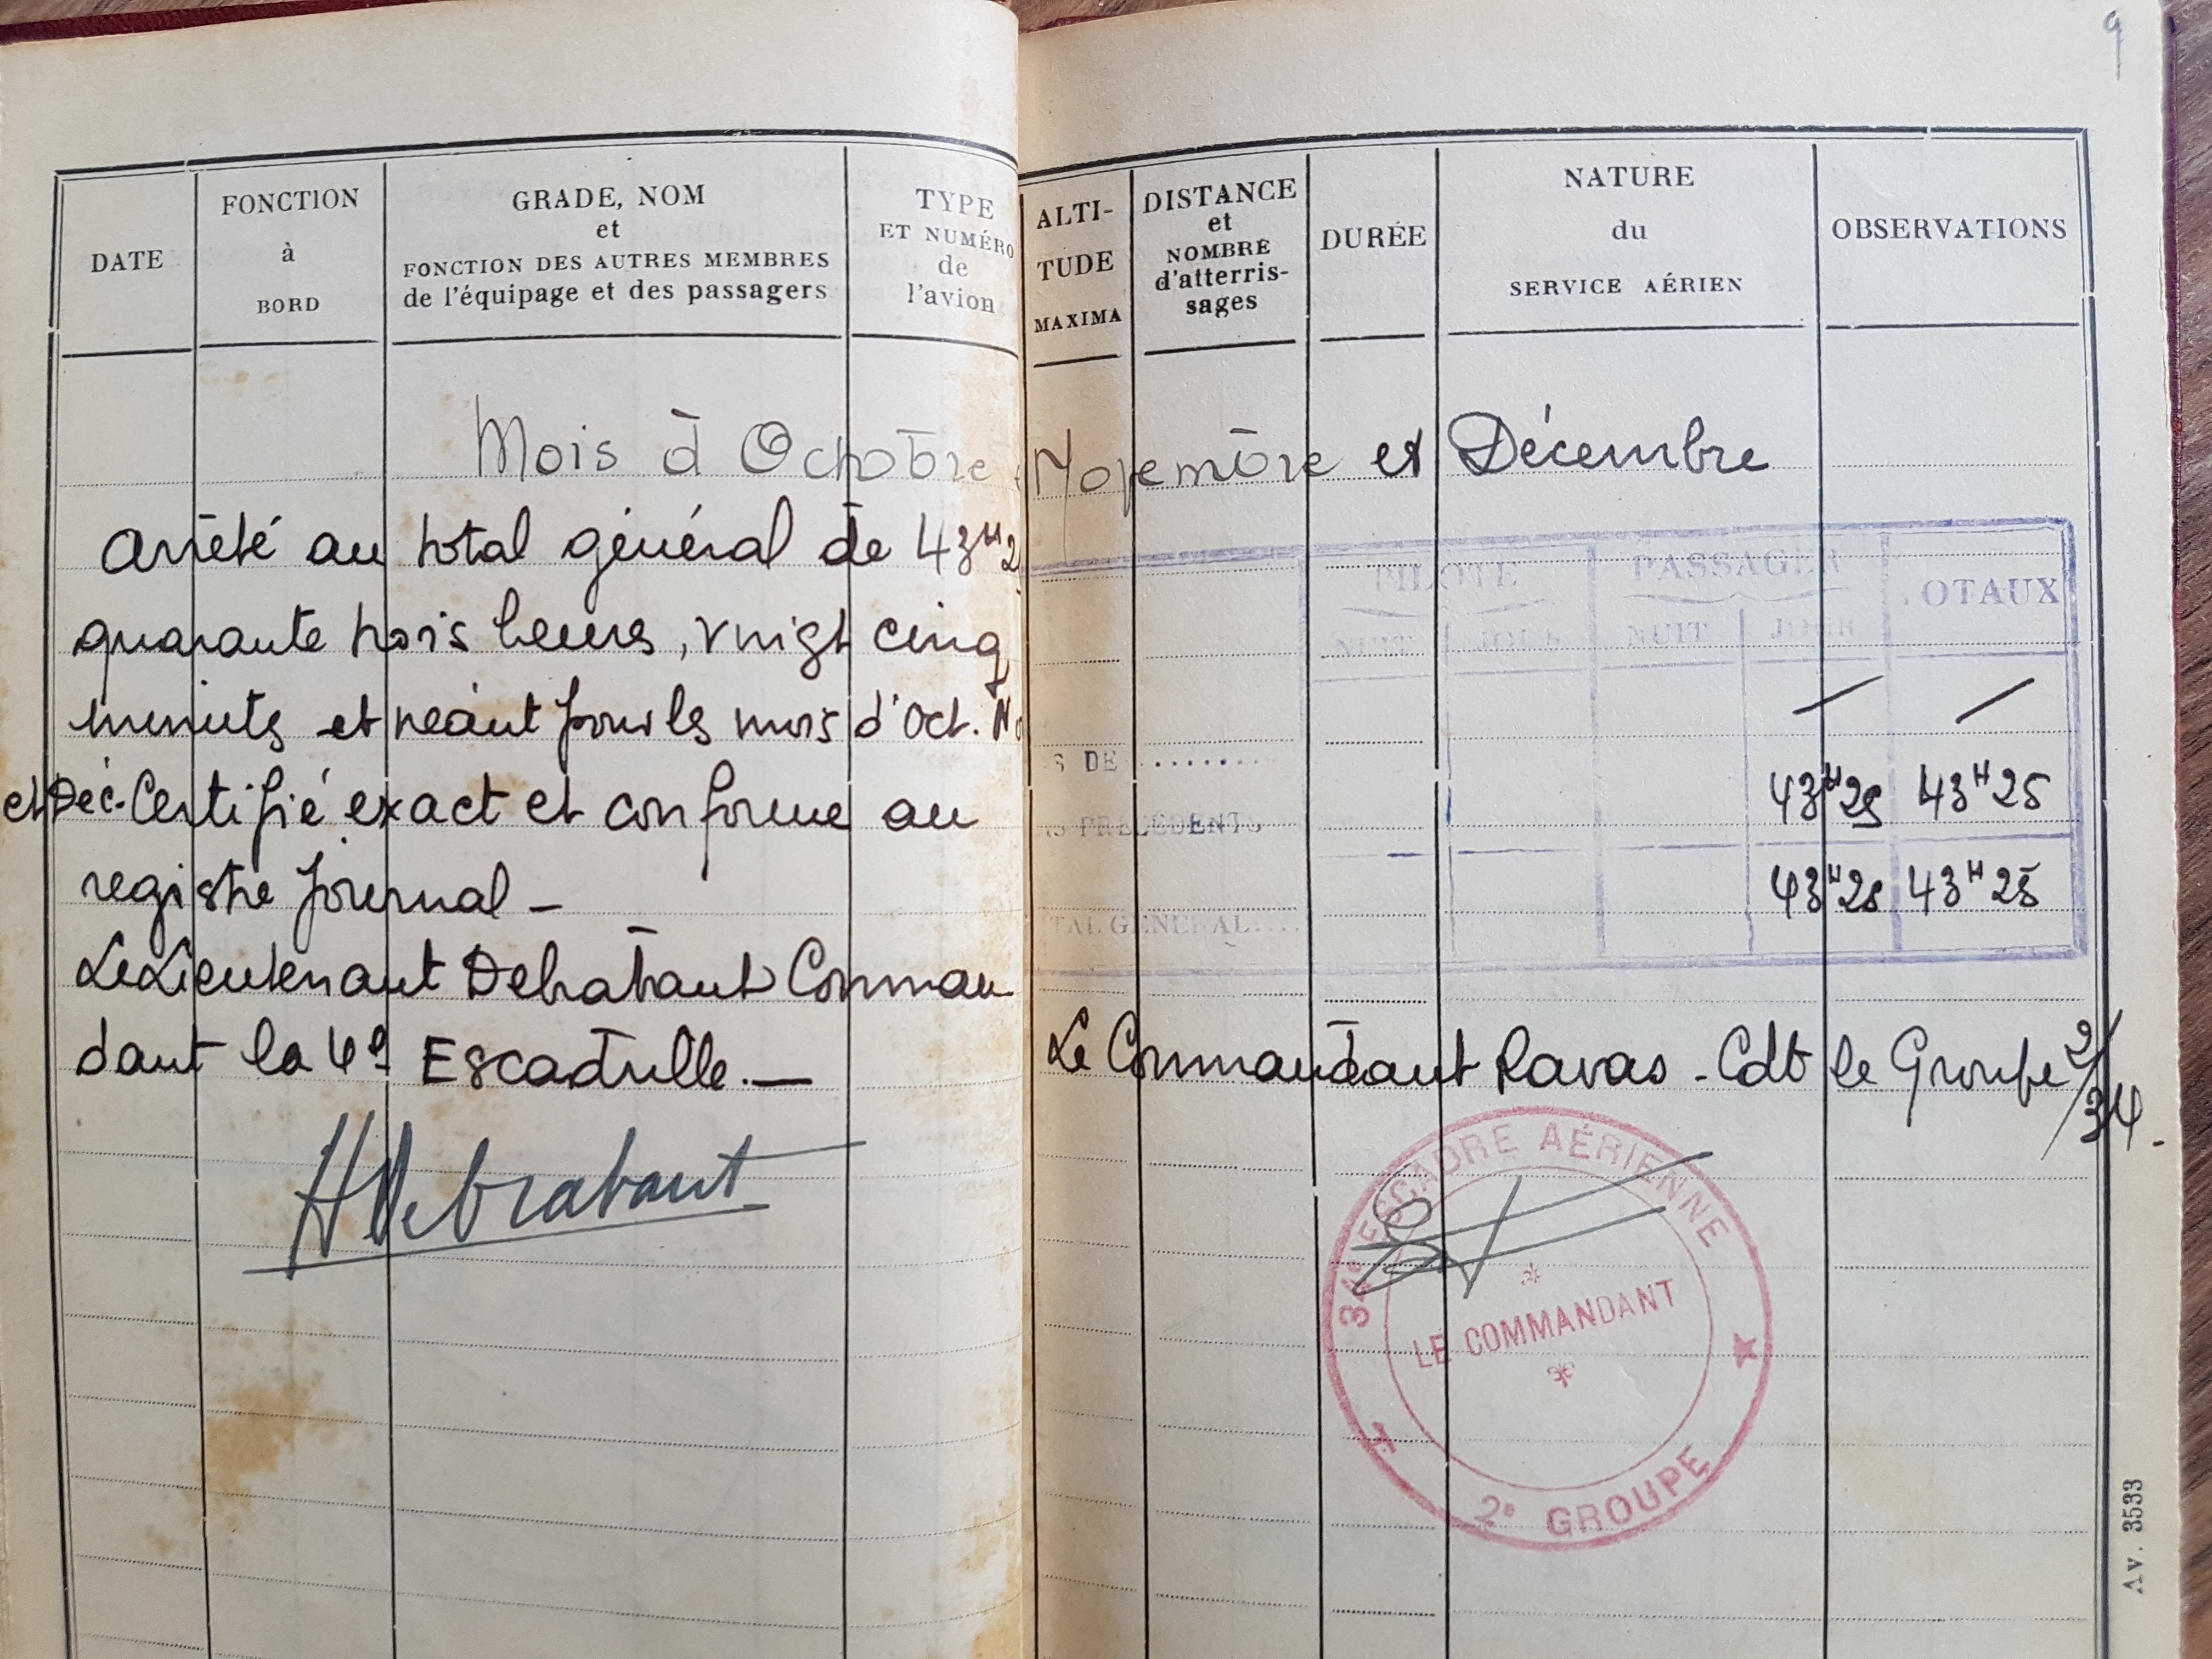 9
DATE
FONCTION
à
BORD
GRADE, NOM
et
FONCTION DES AUTRES MEMBRES
de l'équipage et des passagers
TYPE
ET NUMÉRO
de
l'avion
ALTI-
TUDE
MAXIMA
DISTANCE
et
NOMBRE
d'atterris-
sages
DURÉE
NATURE
du
SERVICE AÉRIEN
OBSERVATIONS
Mois d'Octobre Novembre et Décembre
Arrêté au total général de 43H2
quarante trois heures, vingt cinq
minutes et néant pour les mois d'Oct. No
et Déc. Certifié exact et conforme au
registre journal -
Le Lieutenant Debrabant Comman
dant la 4e Escadrille. -
HDebrabant
PILOTE PASSAGER OTAUX
NUIT JOUR NUIT JOUR
S DE ........
43H25 43H25
IS PRÉCÉDENTS
43H25 43H25
TAL GENERAL....
Le Commandant Ravas - Cdt le Groupe 2/34.
34e ESCADRE AÉRIENNE
LE COMMANDANT
2e GROUPE
Av. 3533